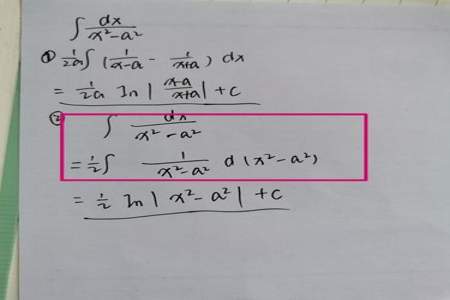 ∫ dx/(x²-a²)
① 1/2a ∫ (1/(x-a) - 1/(x+a)) dx
= 1/2a ln |(x-a)/(x+a)| + c
② ∫ dx/(x²-a²)
= 1/2 ∫ 1/(x²-a²) d(x²-a²)
= 1/2 ln |x²-a²| + c